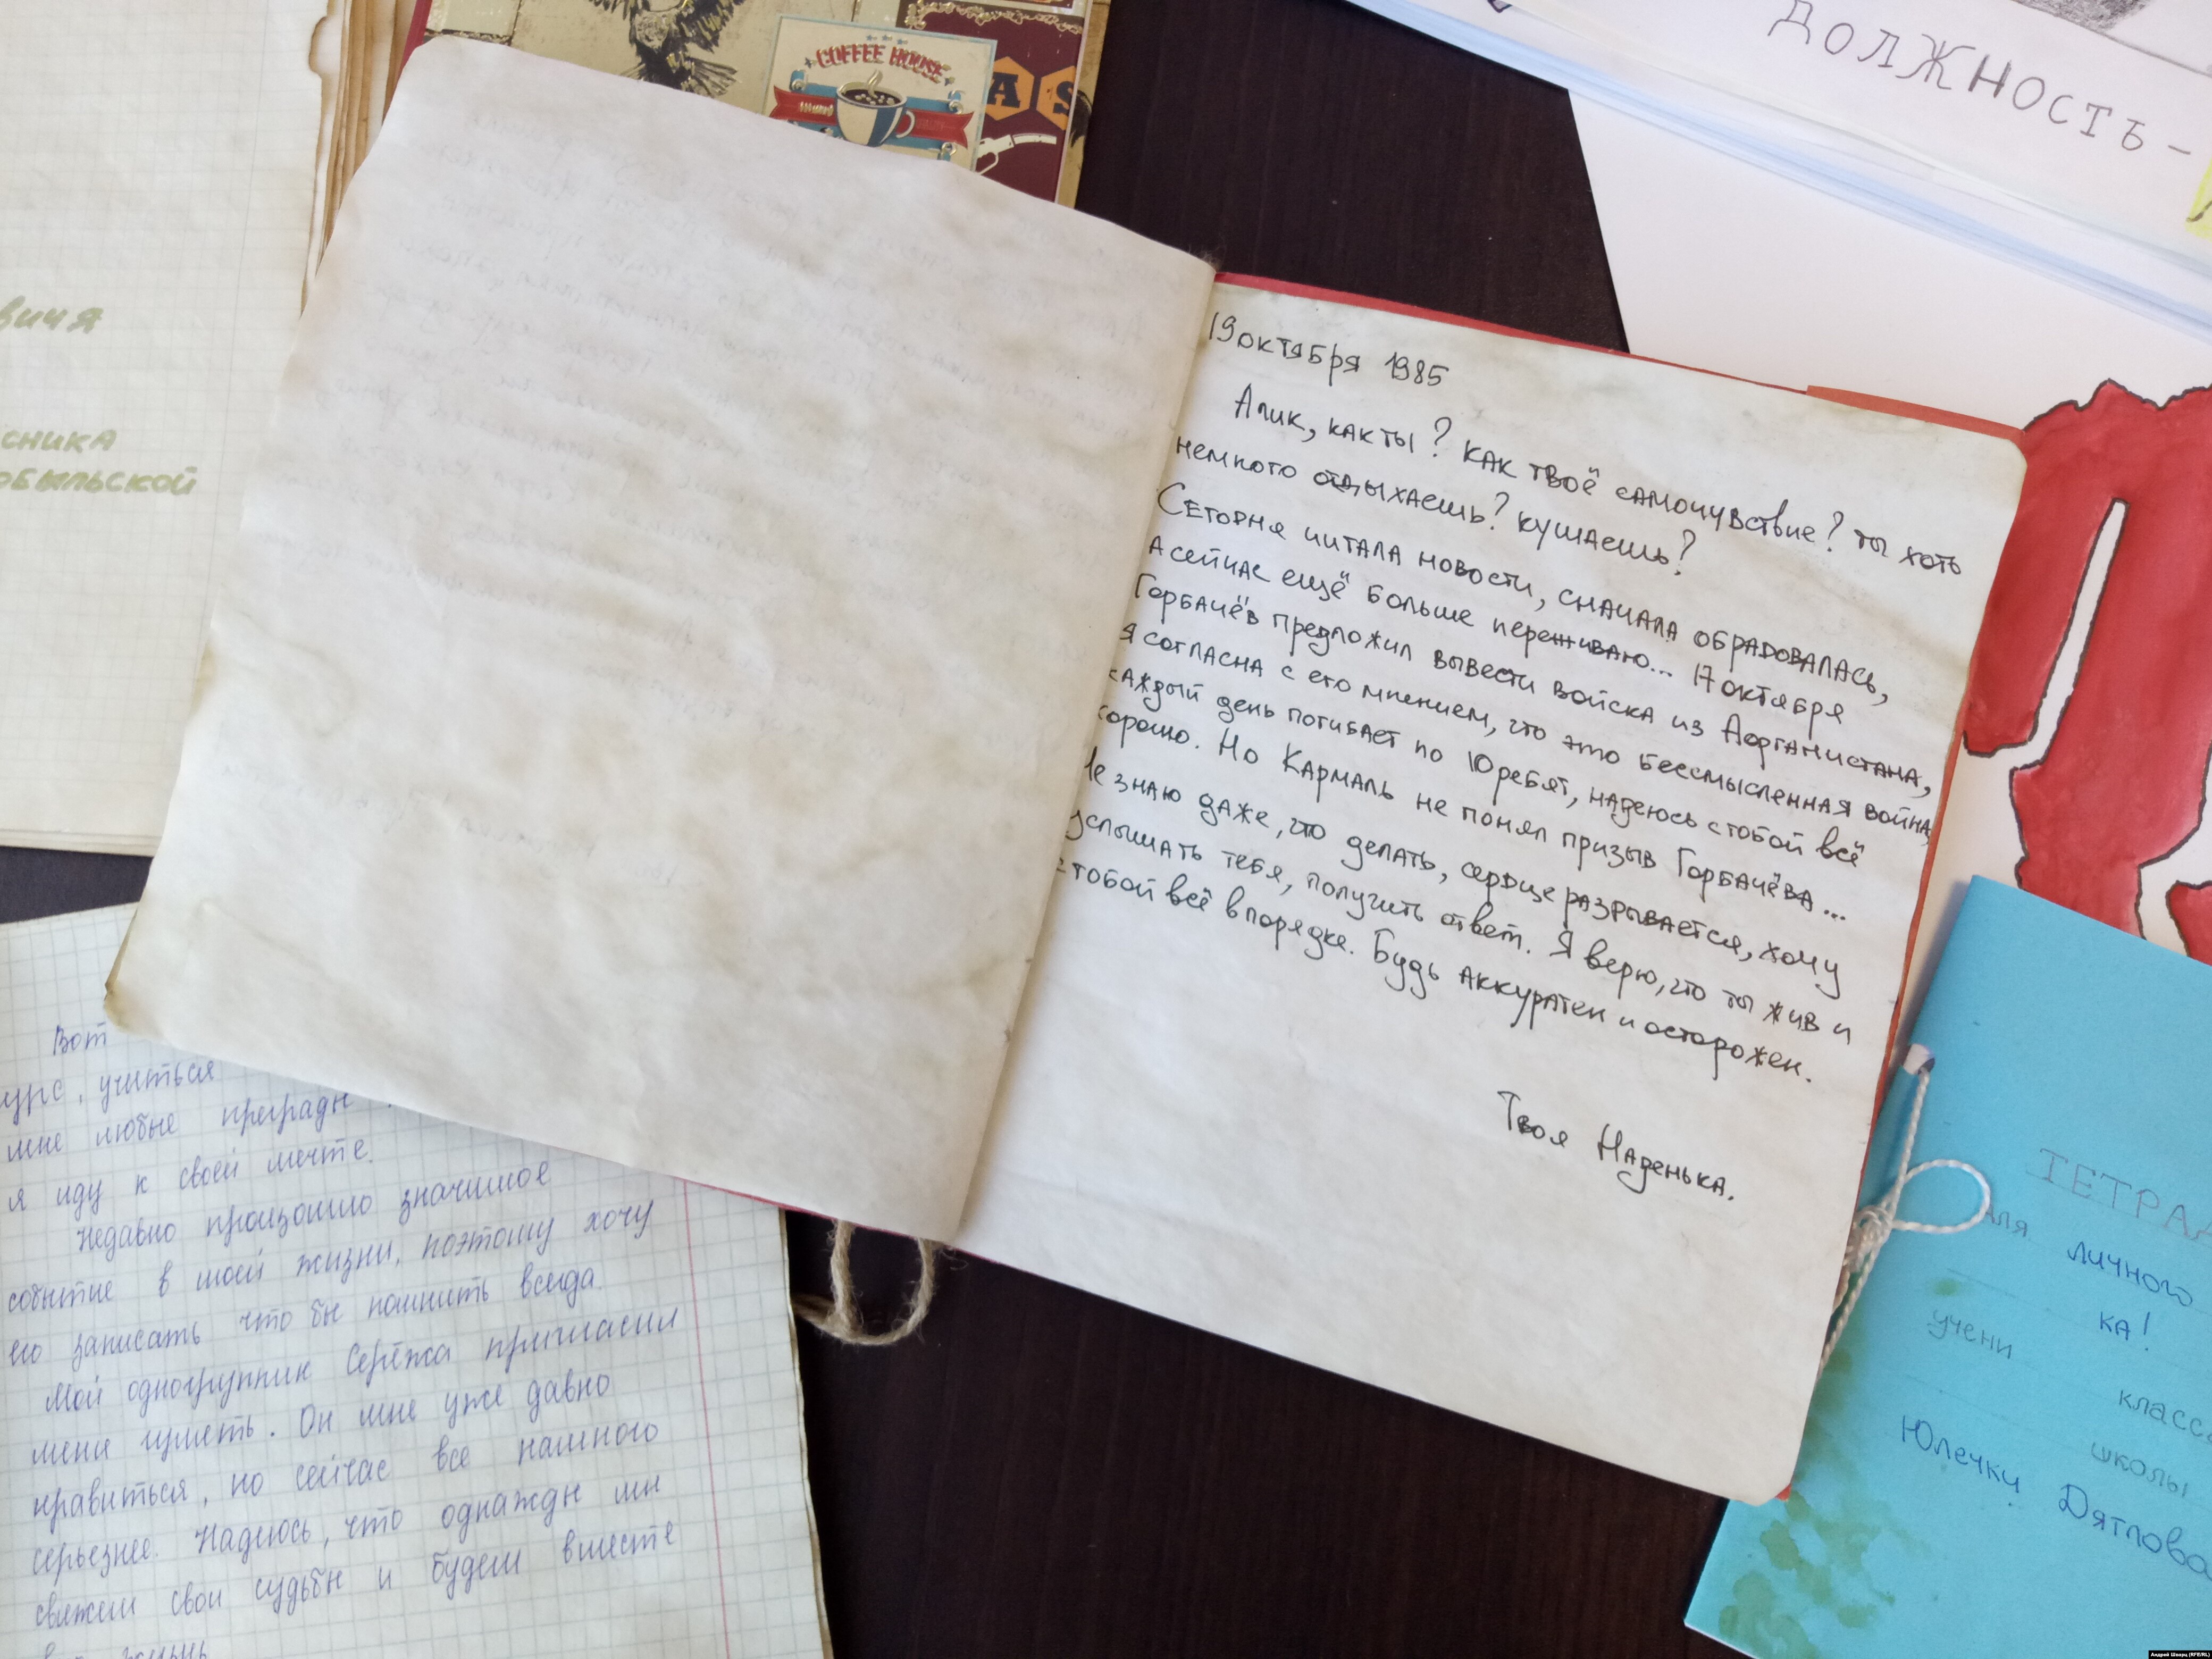 COFFEE HOUSE
AS
ДОЛЖНОСТЬ -
вичя
сника
обыльской
19 октября 1985
Алик, как ты? Как твоё самочувствие? Ты хоть
немного отдыхаешь? Кушаешь?
Сегодня читала новости, сначала обрадовалась,
а сейчас ещё больше переживаю... 17 октября
Горбачёв предложил вывести войска из Афганистана,
я согласна с его мнением, что это бессмысленная война,
каждый день погибает по 10 ребят, надеюсь с тобой всё
хорошо. Но Кармаль не понял призыв Горбачёва...
Не знаю даже, что делать, сердце разрывается, хочу
услышать тебя, получить ответ. Я верю, что ты жив и
с тобой всё в порядке. Будь аккуратен и осторожен.
Твоя Наденька.
Вот
урс, учиться
мне любые преграды
я иду к своей мечте.
Недавно произошло значимое
событие в моей жизни, поэтому хочу
его записать что бы помнить всегда.
Мой одногрупник Серёжа пригласил
меня гулять. Он мне уже давно
нравиться, но сейчас все намного
серьезнее. Надеюсь, что однажды мы
свяжем свои судьбы и будем вместе
жизнь
ТЕТРАД
для личного
ка!
учени
класса
школы
Юлечки Дятлова
Андрей Шварц (RFE/RL)